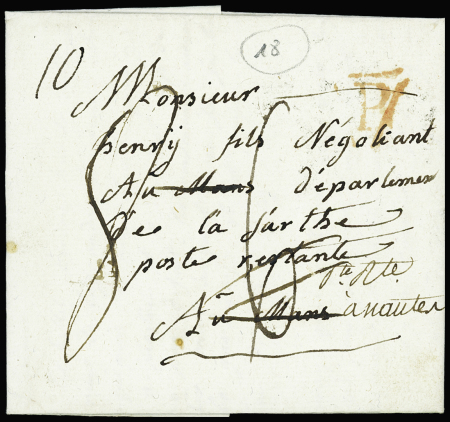 18
10
P
Monsieur
henrij fils Négotiant
Au Mans département
de la Sarthe
poste restante
Pte Rte
Au Mans a nantes